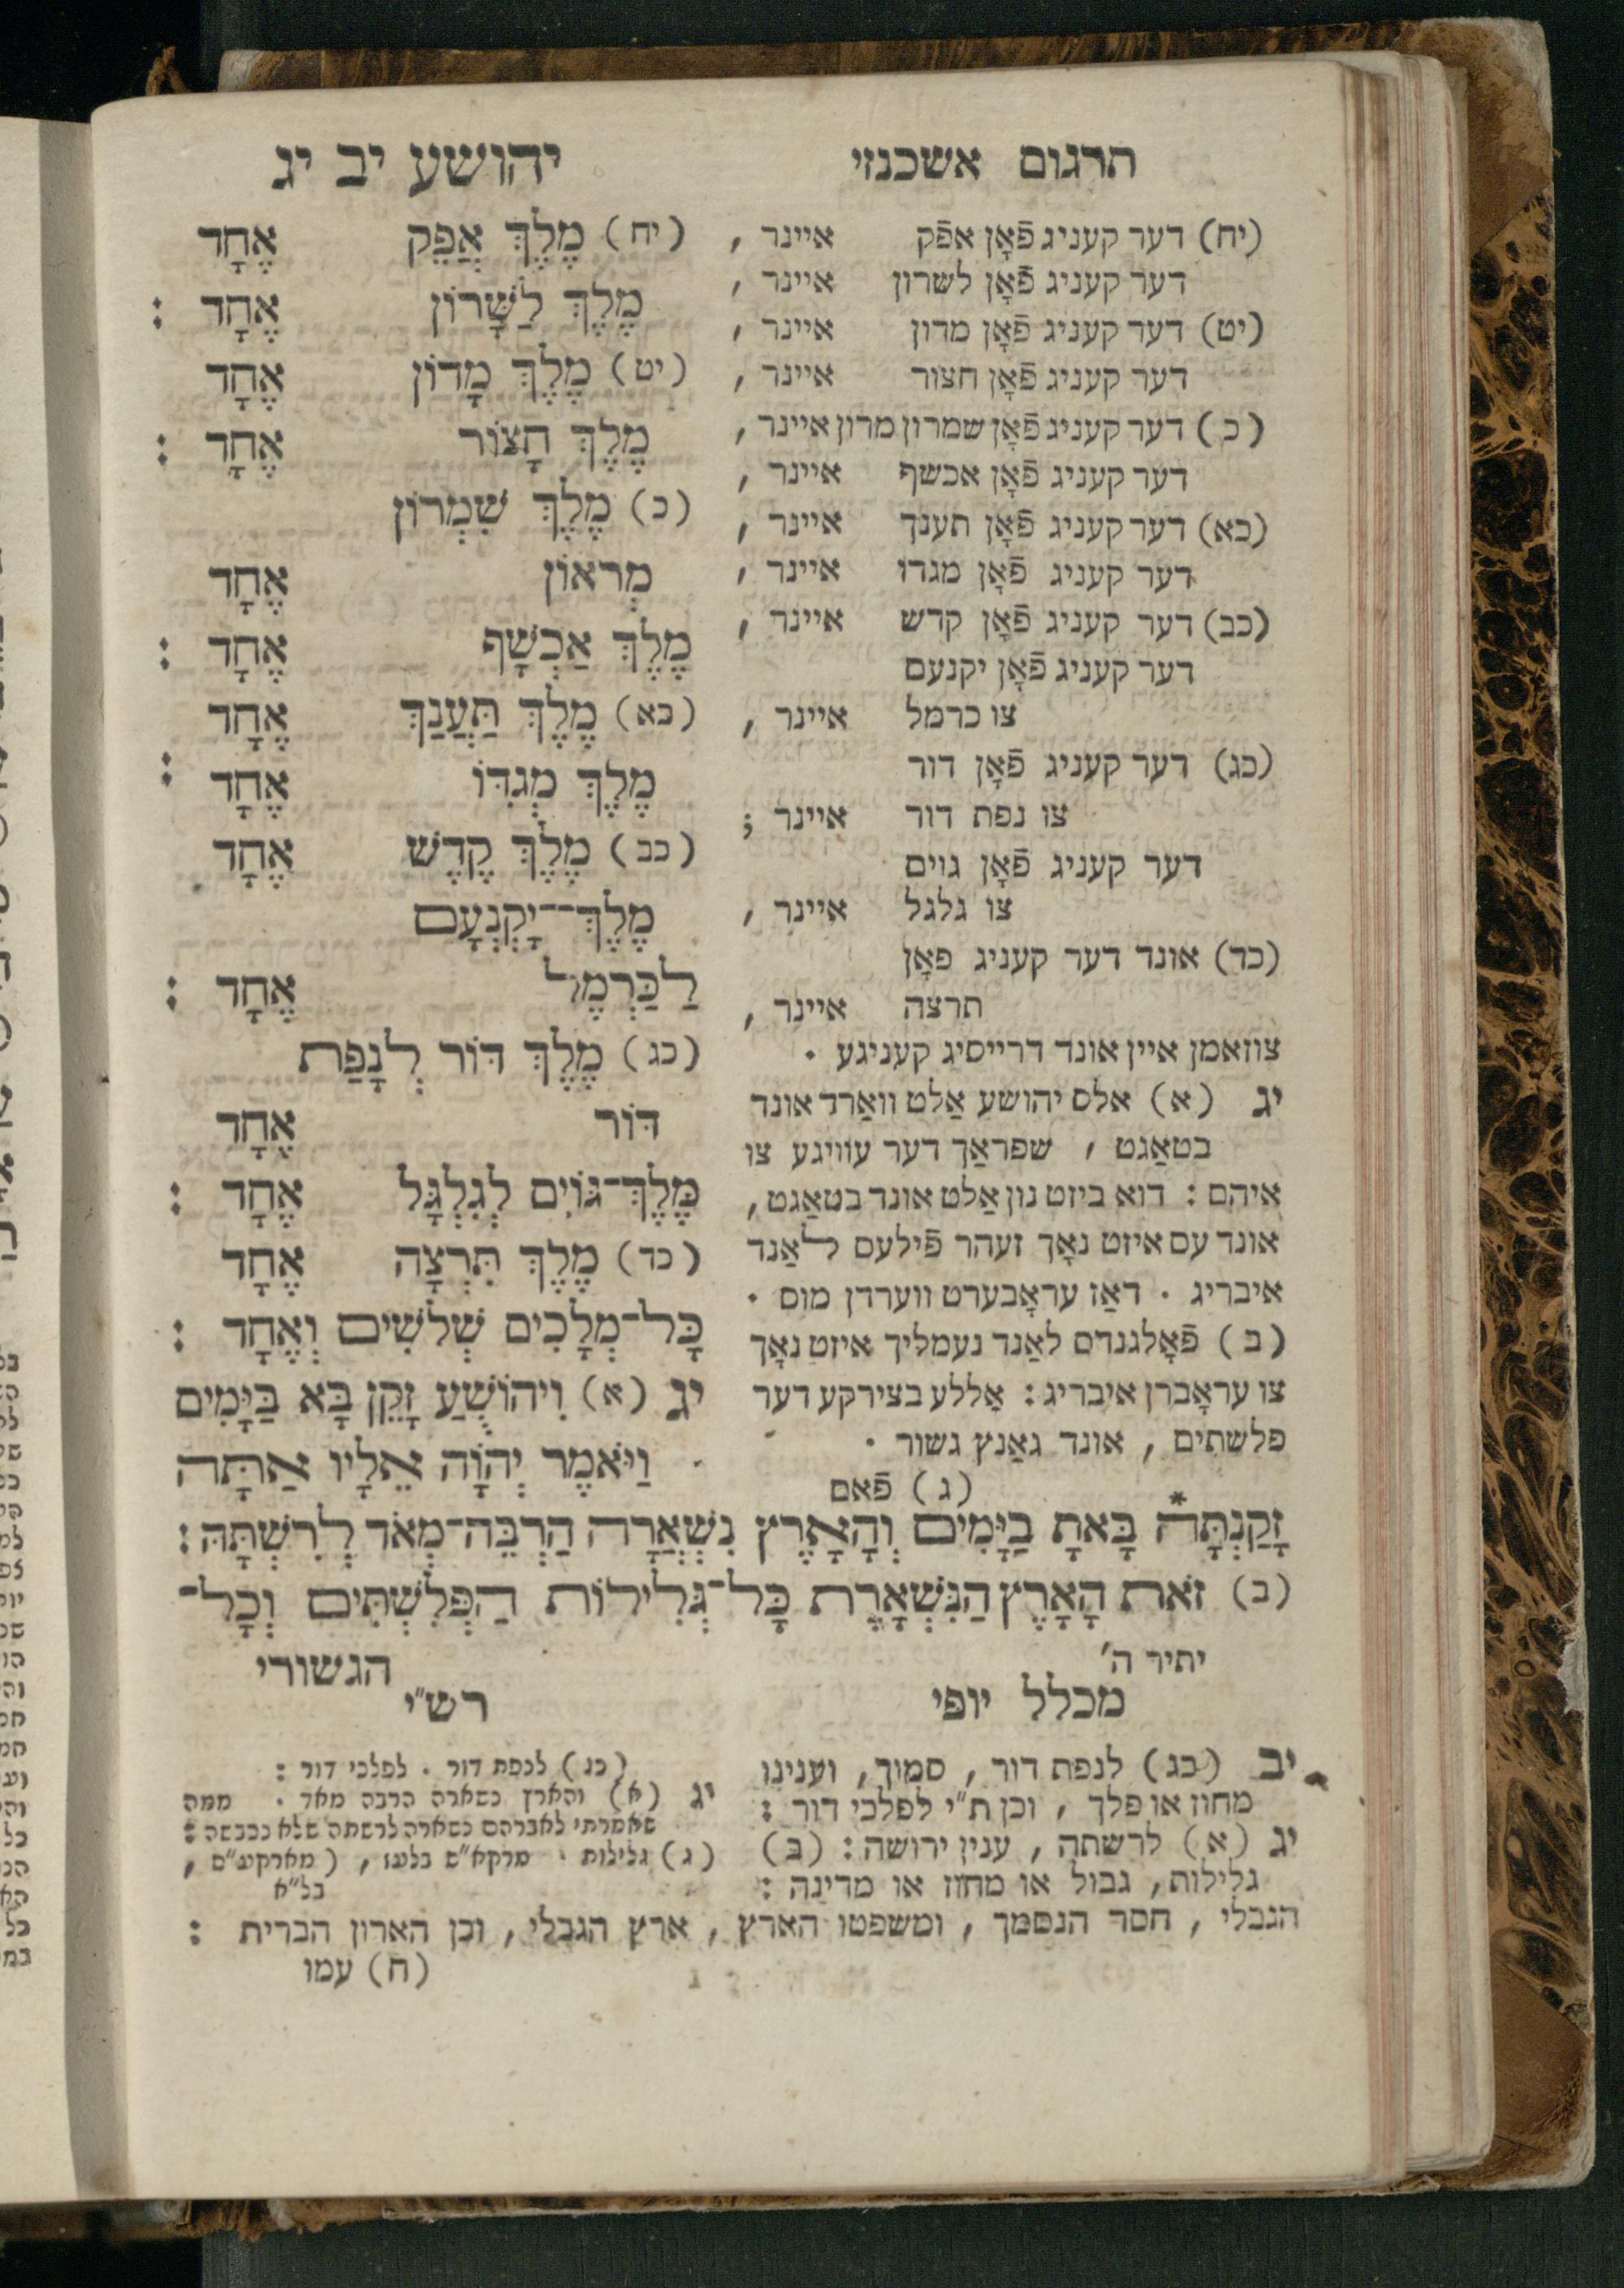 תרגום אשכנזי
יהושע יב יג
(יח) דער קעניג פֿאָן אפֿק איינר ,
דער קעניג פֿאָן לשרון איינר ,
(יט) דער קעניג פֿאָן מדון איינר ,
דער קעניג פֿאָן חצור איינר ,
(כ) דער קעניג פֿאָן שמרון מרון איינר ,
דער קעניג פֿאָן אכשף איינר ,
(כא) דער קעניג פֿאָן תענך איינר ,
דער קעניג פֿאָן מגדו איינר ,
(כב) דער קעניג פֿאָן קדש איינר ,
דער קעניג פֿאָן יקנעם
צו כרמל איינר ,
(כג) דער קעניג פֿאָן דור
צו נפת דור איינר ;
דער קעניג פֿאָן גוים
צו גלגל איינר ,
(כד) אונד דער קעניג פאָן
תרצה איינר ,
צוזאמן איין אונד דרייסיג קעניגע .
יג (א) אלס יהושע אַלט וואַרד אונד
בטאַגט , שפראַך דער עוויגע צו
איהם : דוא ביזט נון אַלט אונד בטאַגט ,
אונד עס איזט נאָך זעהר פֿילעס לאַנד
איבריג . דאַז עראָבערט ווערדן מוס .
(ב) פֿאָלגנדס לאַנד נעמליך איזט נאָך
צו עראָברן איבריג : אַללע בצירקע דער
פלשתים , אונד גאַנץ גשור .
(ג) פֿאם
(יח) מֶלֶךְ אֲפֵק אֶחָד
מֶלֶךְ לַשָּׁרוֹן אֶחָד :
(יט) מֶלֶךְ מָדוֹן אֶחָד
מֶלֶךְ חָצוֹר אֶחָד :
(כ) מֶלֶךְ שִׁמְרוֹן
מְראוֹן אֶחָד
מֶלֶךְ אַכְשָׁף אֶחָד :
(כא) מֶלֶךְ תַּעֲנַךְ אֶחָד
מֶלֶךְ מְגִדּוֹ אֶחָד :
(כב) מֶלֶךְ קֶדֶשׁ אֶחָד
מֶלֶךְ־יָקְנְעָם
לַכַּרְמֶל אֶחָד :
(כג) מֶלֶךְ דּוֹר לְנָפַת
דּוֹר אֶחָד
מֶלֶךְ־גּוֹיִם לְגִלְגָּל אֶחָד :
(כד) מֶלֶךְ תִּרְצָה אֶחָד
כָּל־מְלָכִים שְׁלֹשִׁים וְאֶחָד :
יג (א) וִיהוֹשֻׁעַ זָקֵן בָּא בַּיָּמִים
וַיֹּאמֶר יְהוָֹה אֵלָיו אַתָּה
זָקַנְתָּה* בָּאתָ בַיָּמִים וְהָאָרֶץ נִשְׁאֲרָה הַרְבֵּה־מְאֹד לְרִשְׁתָּהּ :
(ב) זֹאת הָאָרֶץ הַנִּשְׁאָרֶת כָּל־גְּלִילוֹת הַפְּלִשְׁתִּים וְכָל־
יתיר ה'
הגשורי
מכלל יופי
יב (כג) לנפת דור , סמוך , וענינו
מחוז או פלך , וכן ת"י לפלכי דור :
יג (א) לרשתה , ענין ירושה : (ב)
גלילות , גבול או מחוז או מדינה :
רש"י
(כג) לנפת דור . לפלכי דור :
יג (א) והארץ נשארה הרבה מאד . ממה
שאמרתי לאברהם נשארה לרשתה שלא נכבשה :
(ג) גלילות . מרקא"ס בלעז , (מארקע"ם ,
בל"א
הגבלי , חסר הנסמך , ומשפטו הארץ , ארץ הגבלי , וכן הארון הברית :
(ח) עמו